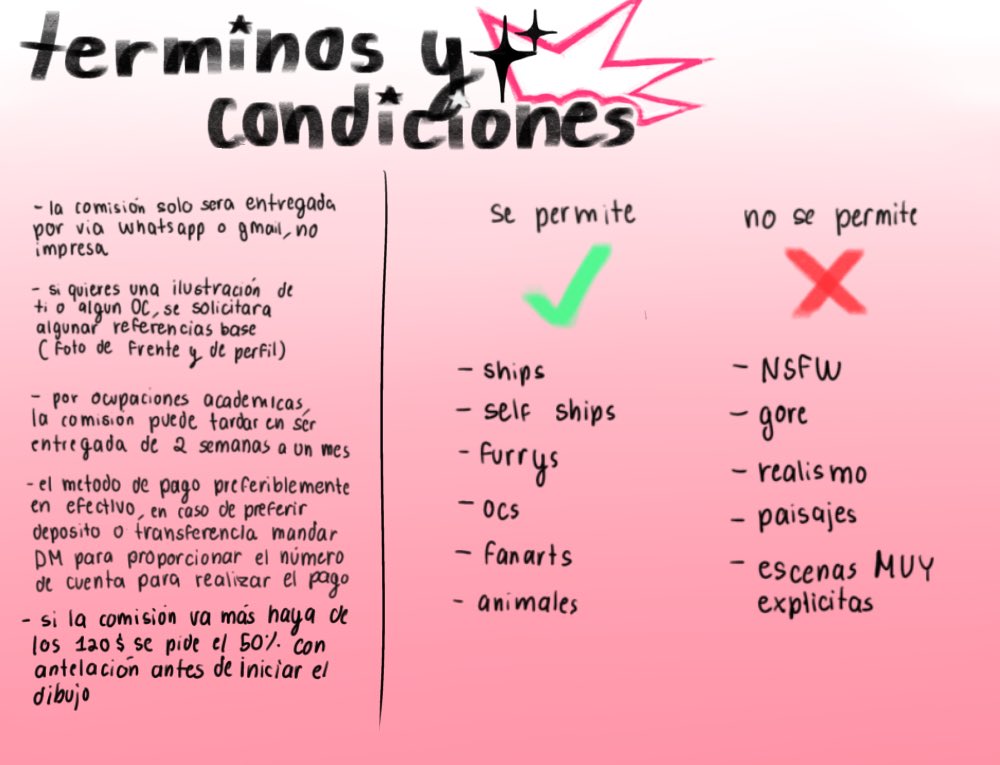 terminos y
condiciones
- la comisión solo sera entregada
por via whatsapp o gmail, no
impresa
- si quieres una ilustración de
ti o algun OC, se solicitara
algunar referencias base
(foto de frente y de perfil)
- por ocupaciones academicas,
la comisión puede tardar en ser
entregada de 2 semanas a un mes
- el metodo de pago preferiblemente
en efectivo, en caso de preferir
deposito o transferencia mandar
DM para proporcionar el número
de cuenta para realizar el pago
- si la comisión va más haya de
los 120$ se pide el 50% con
antelación antes de iniciar el
dibujo
se permite
- ships
- self ships
- furrys
- ocs
- fanarts
- animales
no se permite
- NSFW
- gore
- realismo
- paisajes
- escenas MUY
explicitas